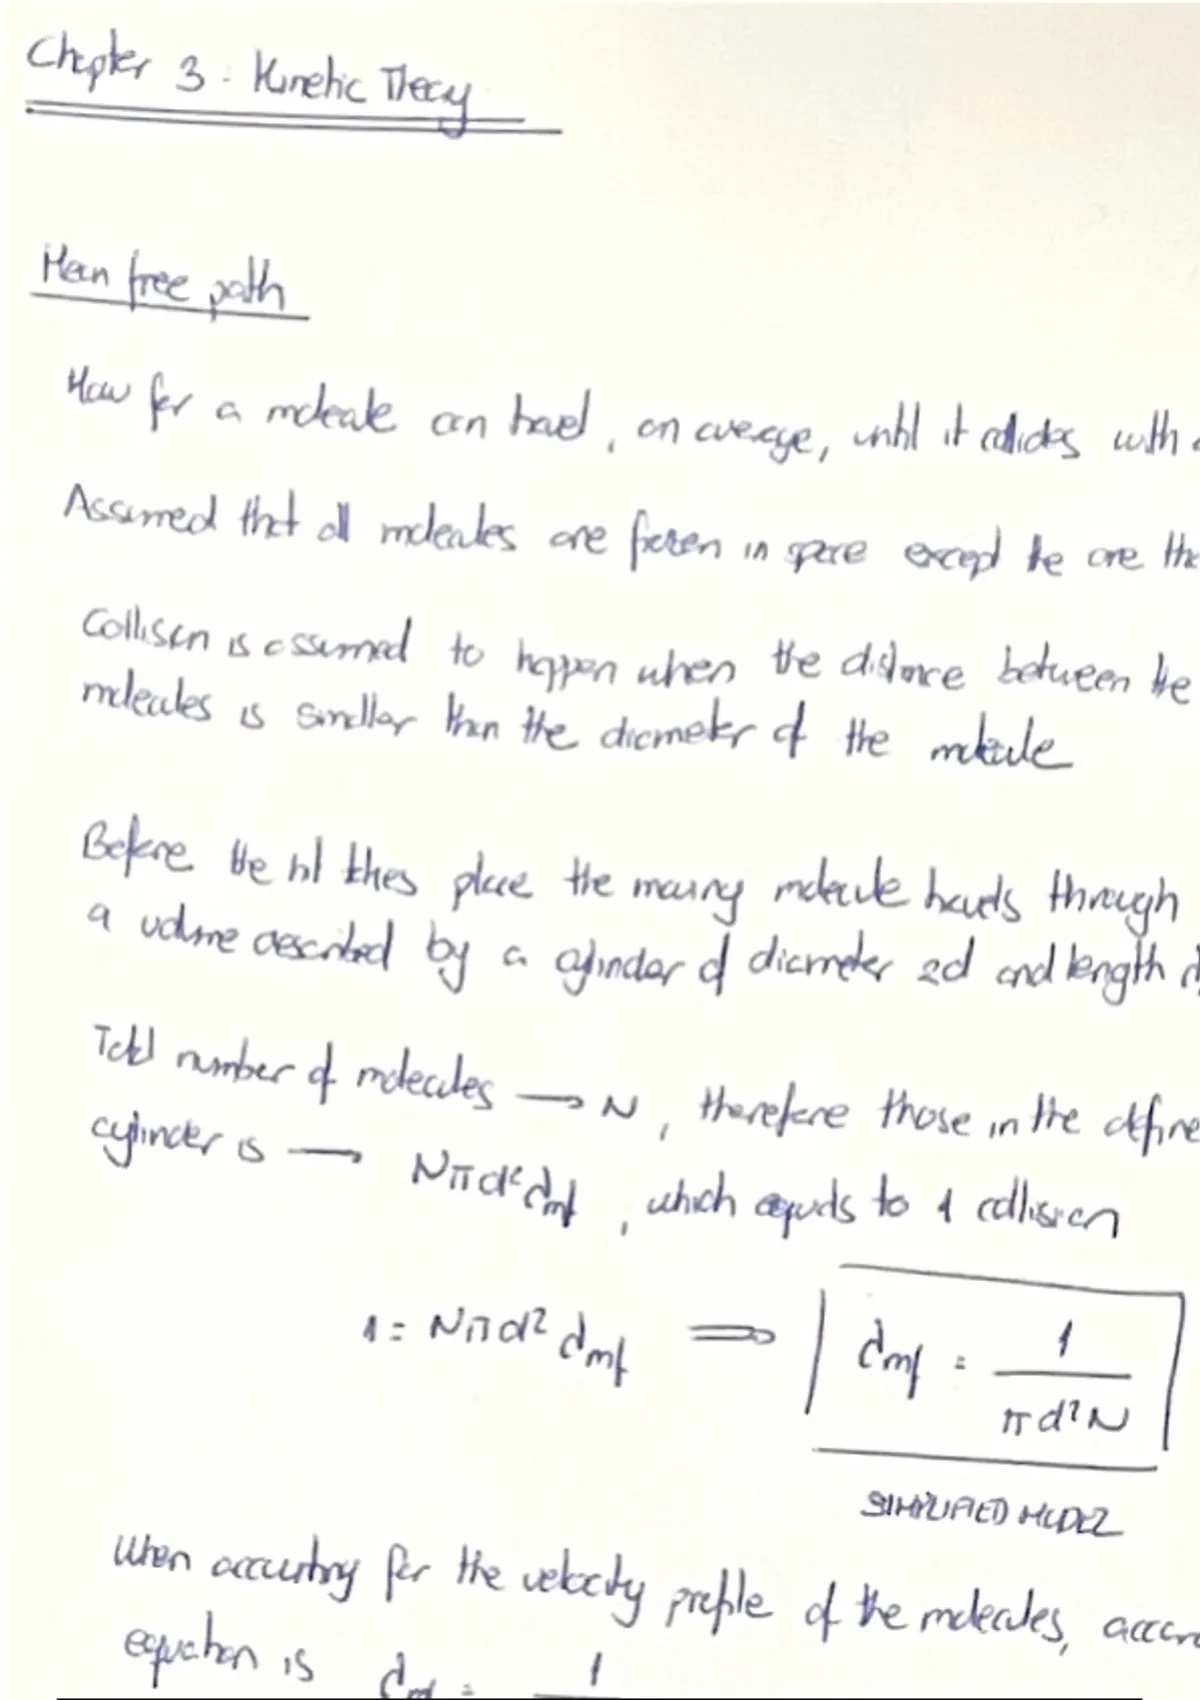 Chapter 3 - Kinetic Theory
Mean free path
How far a molecule can travel, on average, until it collides with
Assumed that all molecules are frozen in space except the one
Collision is assumed to happen when the distance between the
molecules is smaller than the diameter of the molecule
Before the hit takes place the moving molecule travels through
a volume described by a cylinder of diameter 2d and length
Total number of molecules → N, therefore those in the
cylinder is → Nπd² dmf, which equals to 1 collision
1 = Nπd² dmf ⇒ dmf = 1 / πd²N
SIMPLIFIED MODEL
When accounting for the velocity profile of the molecules,
equation is dmf = 1